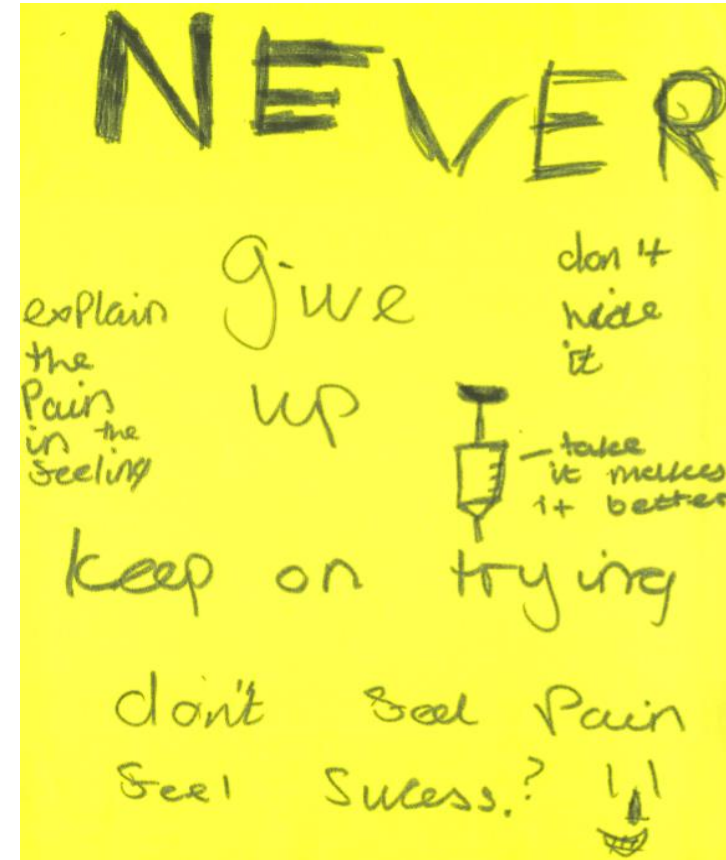 NEVER
give
up
explain
the
Pain
in the
feeling
don't
hide
it
take
it makes
it better
keep on trying
don't feel Pain
feel Sucess.?